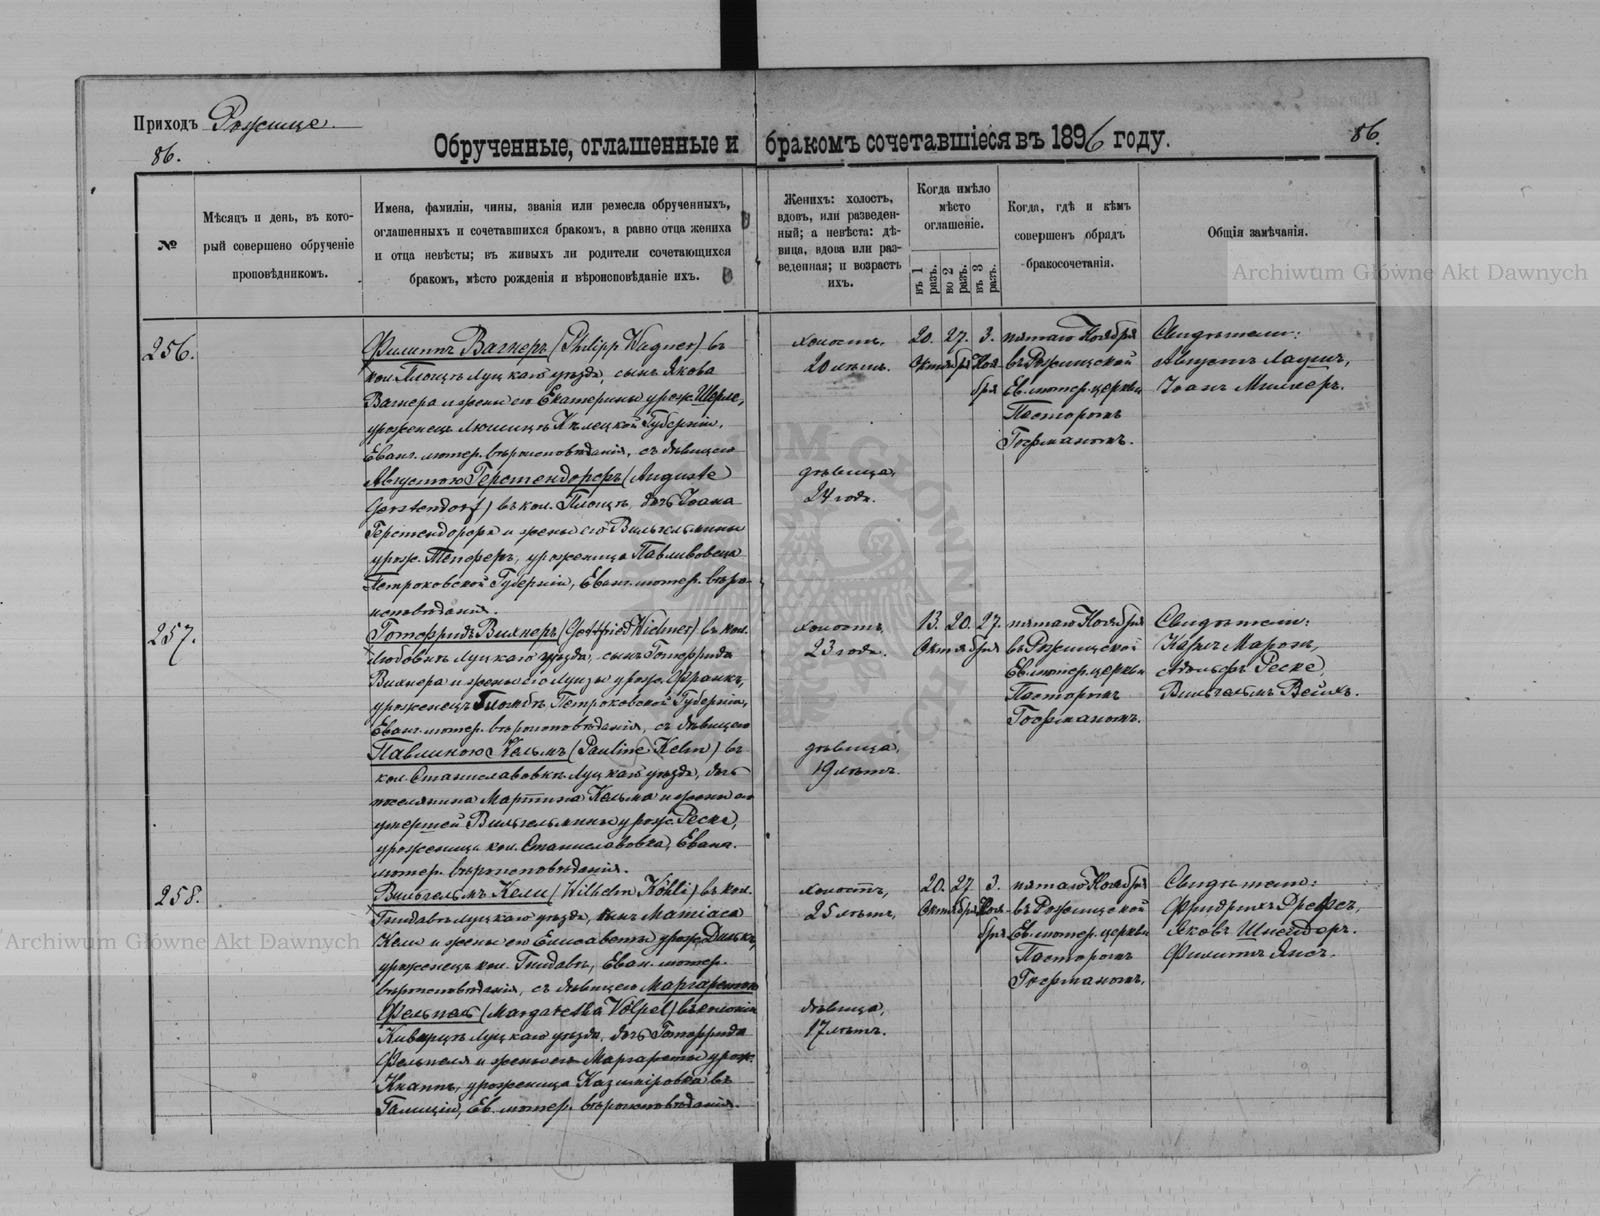 Приходъ Рожище.
86.
86.
Обрученные, оглашенные и бракомъ сочетавшіеся въ 1896 году.
№
Мѣсяцъ и день, въ кото-
рый совершено обрученіе
проповѣдникомъ.
Имена, фамиліи, чины, званія или ремесла обрученныхъ,
оглашенныхъ и сочетавшихся бракомъ, а равно отца жениха
и отца невѣсты; въ живыхъ ли родители сочетающихся
бракомъ, мѣсто рожденія и вѣроисповѣданіе ихъ.
Женихъ: холостъ,
вдовъ, или разведен-
ный; а невѣста: дѣ-
вица, вдова или раз-
веденная; и возрастъ
ихъ.
Когда имѣло
мѣсто
оглашеніе.
въ 1 разъ.
во 2 разъ.
въ 3 разъ.
Когда, гдѣ и кѣмъ
совершенъ обрядъ
бракосочетанія.
Общія замѣчанія.
Archiwum Główne Akt Dawnych
256.
Филиппъ Вагнеръ (Philipp Wagner) въ
кол. Площъ Луцкаго уѣзда, сынъ Якова
Вагнера и жены его Екатерины урож. Шерле,
уроженецъ Кѣлецкой Губерніи,
Еванг. лютер. вѣроисповѣданія, съ дѣвицею
Августою Герстендорфъ (Auguste
Gerstendorf) въ кол. Площъ, дочь Іоана
Герстендорфа и жены его Вильгельмины
урож. Тепферъ, уроженица
Петроковской Губерніи, Еванг. лютер. вѣро-
исповѣданія.
холостъ,
20 лѣтъ.
дѣвица,
24 года.
20. 27. 3.
Октября Ноя-
бря
пятаго Ноября
въ Рожищской
Ев. лютер. церкви
Пасторомъ
Гофманомъ.
Свидѣтели:
Августъ Лаушъ,
Іоанъ Миллеръ.
257.
Готфридъ Вихнеръ (Gottfried Wichner) въ кол.
Любовкѣ Луцкаго уѣзда, сынъ Готфрида
Вихнера и жены его Луизы урож. Франкъ,
уроженецъ Петроковской Губерніи,
Еванг. лютер. вѣроисповѣданія, съ дѣвицею
Павлиною Кельмъ (Pauline Kelm) въ
кол. Станиславовкѣ Луцкаго уѣзда, дочь
поселянина Мартина Кельма и жены его
умершей Вильгельмины урож. Реске,
уроженица кол. Станиславовка, Еванг.
лютер. вѣроисповѣданія.
холостъ,
23 года.
дѣвица,
19 лѣтъ.
13. 20. 27.
Октября
пятаго Ноября
въ Рожищской
Ев. лютер. церкви
Пасторомъ
Гофманомъ.
Свидѣтели:
Карлъ
Адольфъ Реске,
Вильгельмъ Вейхъ.
258.
Вильгельмъ Кели (Wilhelm Kölli) въ кол.
Гнидавѣ Луцкаго уѣзда, сынъ Матіаса
Кели и жены его Елисаветы урож.
уроженецъ кол. Гнидавѣ, Еван. лютер.
вѣроисповѣданія, съ дѣвицею Маргаретою
Фельпель (Margaretha Völpel) въ колоніи
Киверцѣ Луцкаго уѣзда, дочь Готфрида
Фельпеля и жены его Маргареты урож.
Кнаппъ, уроженица Казиміровка въ
Галиціи, Ев. лютер. вѣроисповѣданія.
холостъ,
25 лѣтъ,
дѣвица,
17 лѣтъ.
20. 27. 3.
Октября Ноя-
бря
пятаго Ноября
въ Рожищской
Ев. лютер. церкви
Пасторомъ
Гофманомъ.
Свидѣтели:
Фридрихъ
Яковъ Шнейдеръ.
Филиппъ
Archiwum Główne Akt Dawnych